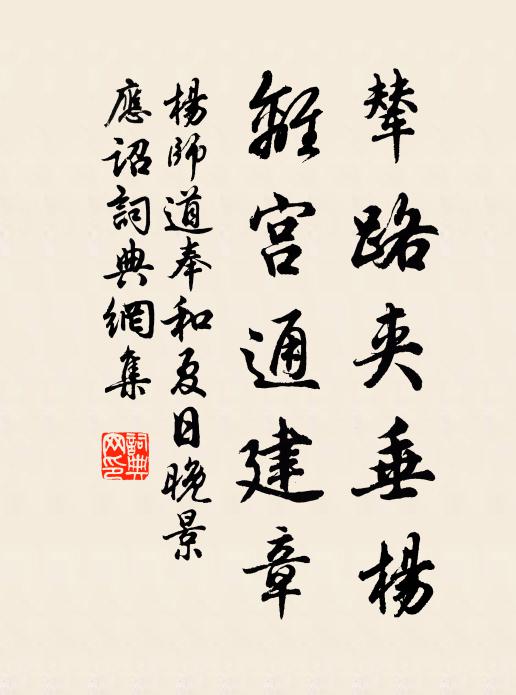 輦路夹垂楊
離宫通建章
楊師道奉和夏日晚景
應詔詞典網集
詞典
网印